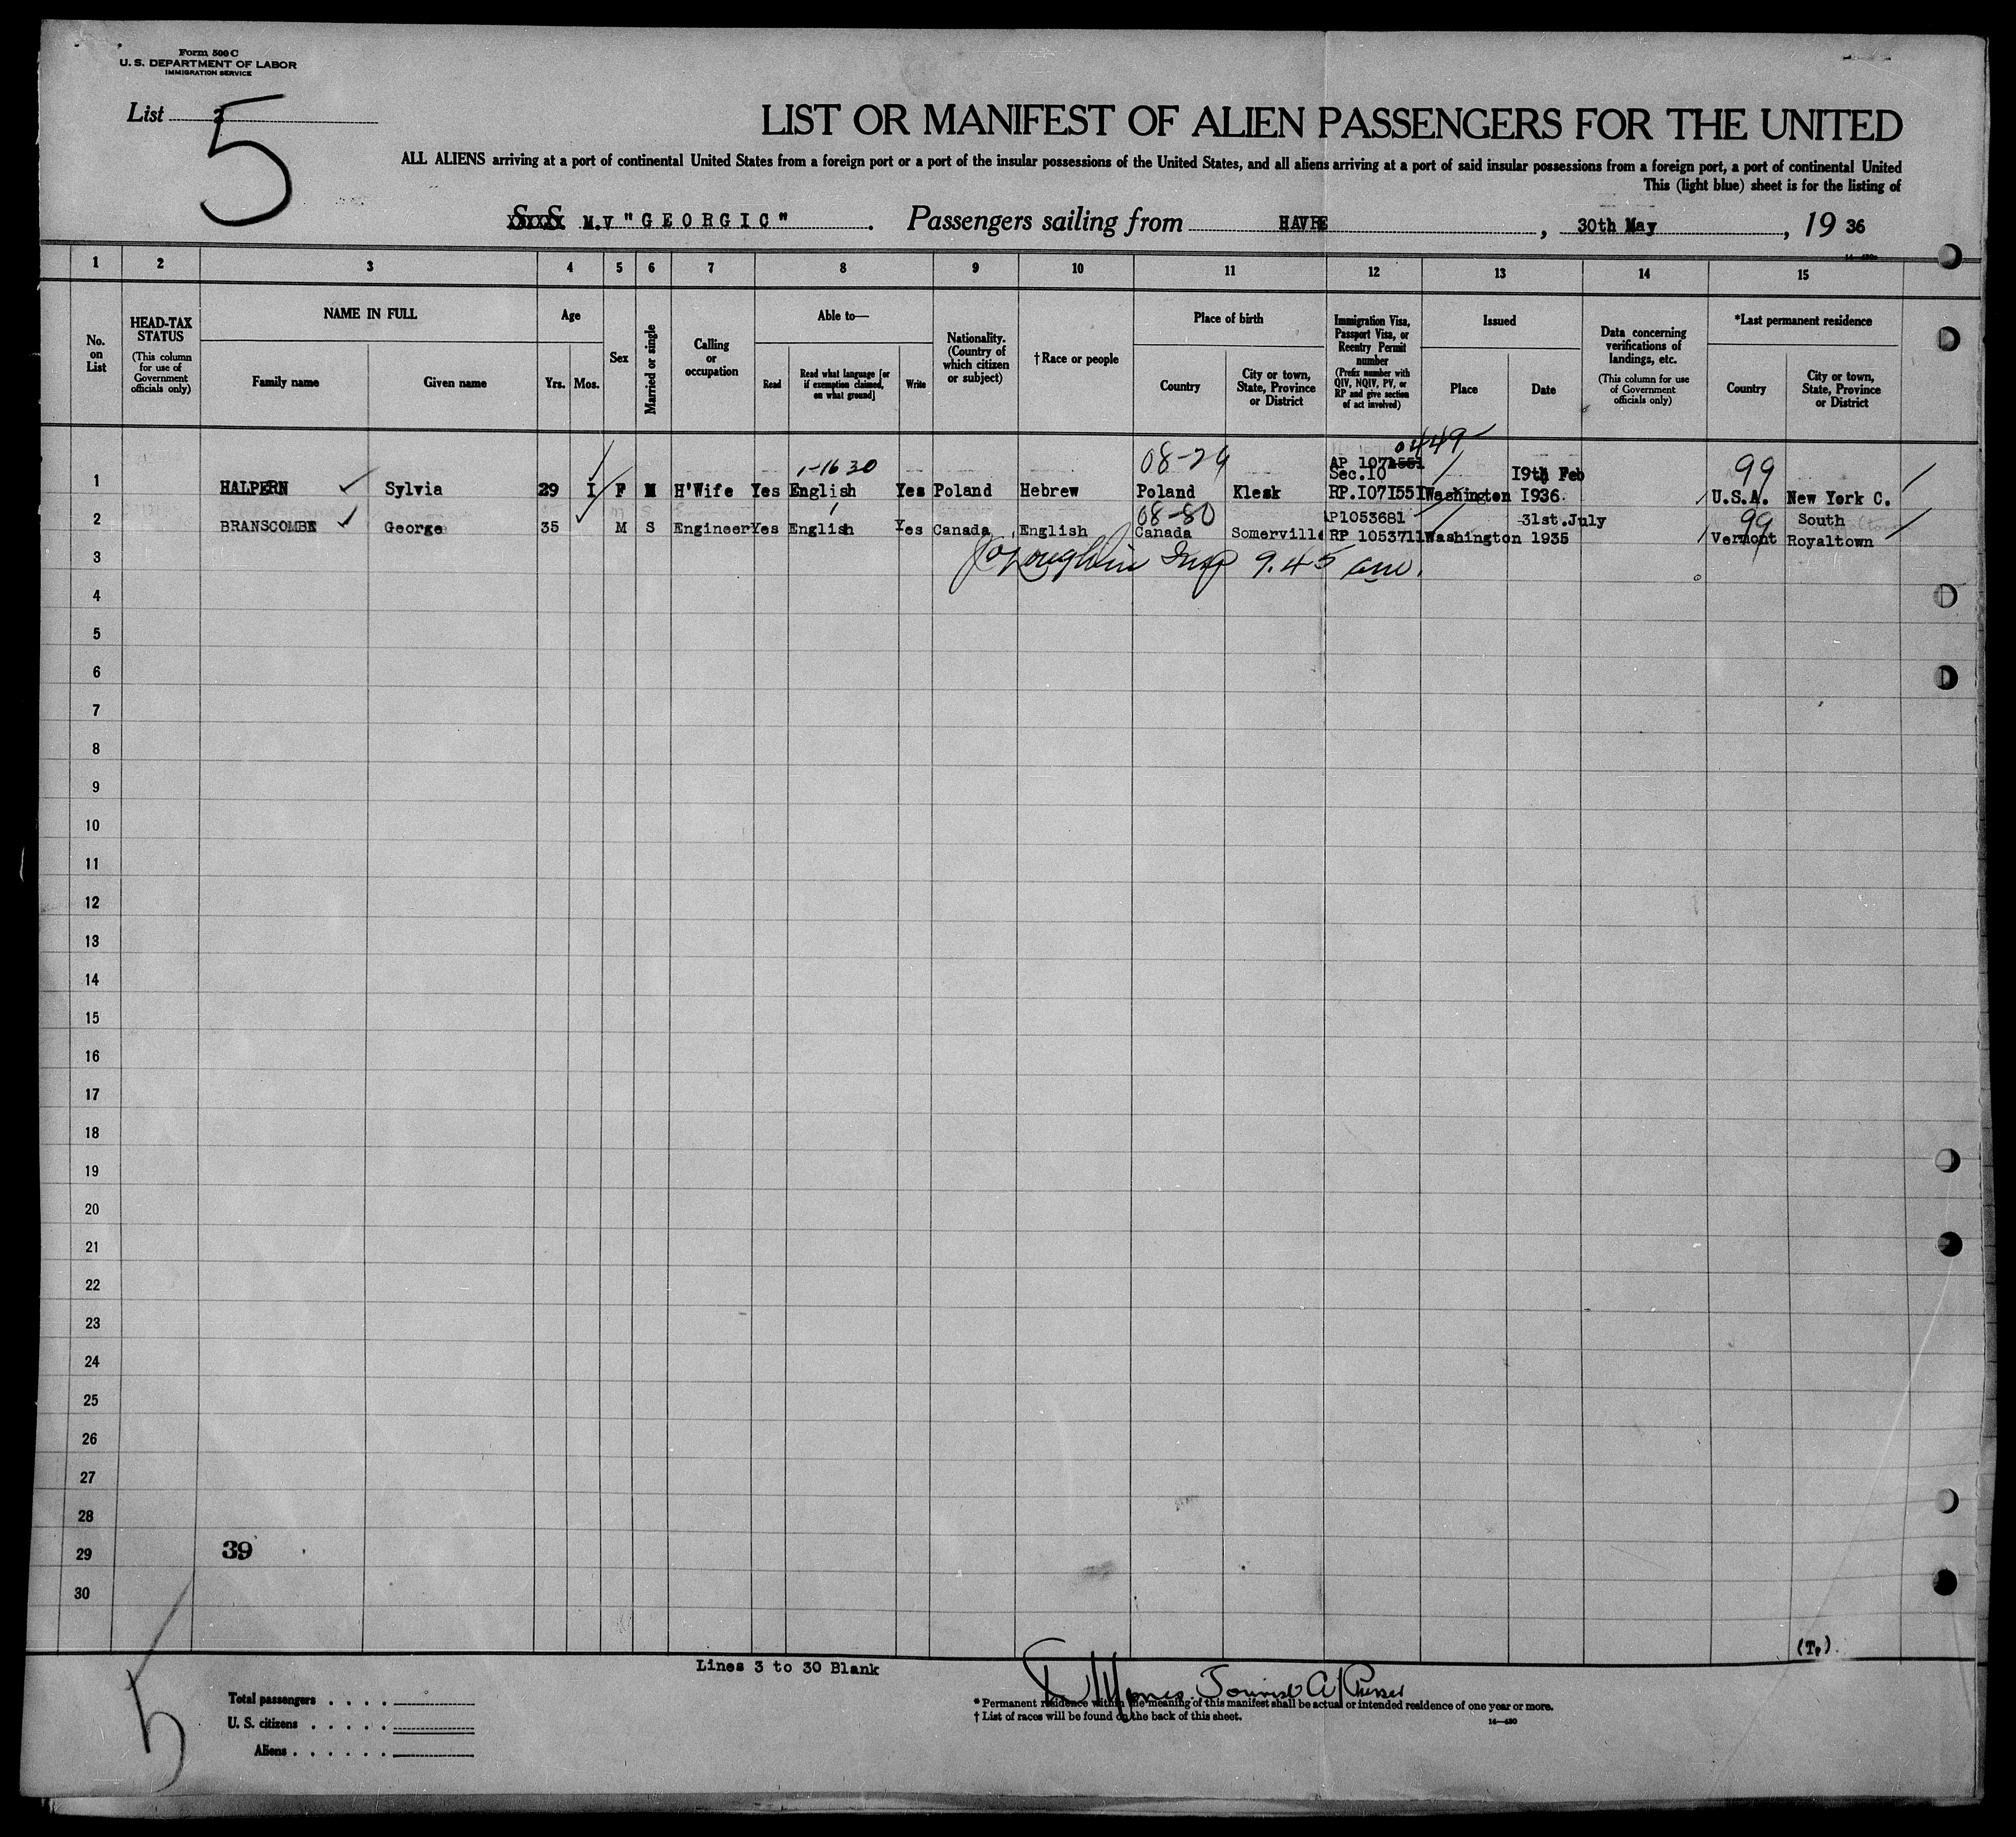 Form 500 C
U. S. DEPARTMENT OF LABOR
IMMIGRATION SERVICE
List
5
LIST OR MANIFEST OF ALIEN PASSENGERS FOR THE UNITED
ALL ALIENS arriving at a port of continental United States from a foreign port or a port of the insular possessions of the United States, and all aliens arriving at a port of said insular possessions from a foreign port, a port of continental United
This (light blue) sheet is for the listing of
M.V "GEORGIC". Passengers sailing from HAVRE, 30th May, 19 36
1 2 3 4 5 6 7 8 9 10 11 12 13 14 15
No. on List
HEAD-TAX STATUS (This column for use of Government officials only)
NAME IN FULL Family name Given name
Age Yrs. Mos.
Sex
Married or single
Calling or occupation
Able to— Read Read what language [or if exemption claimed, on what ground] Write
Nationality. (Country of which citizen or subject)
†Race or people
Place of birth Country City or town, State, Province or District
Immigration Visa, Passport Visa, or Reentry Permit number (Prefix number with QIV, NQIV, PV, or RP and give section of act involved)
Issued Place Date
Data concerning verifications of landings, etc. (This column for use of Government officials only)
*Last permanent residence Country City or town, State, Province or District
0449
1-16 30 08-29 AP 1071551 99
Sec.10 19th Feb
1 HALPERN Sylvia 29 I F M H'Wife Yes English Yes Poland Hebrew Poland Klesk RP.I071551 Washington I936. U.S.A. New York C.
08-80 AP1053681 31st.July 99 South
2 BRANSCOMBE George 35 M S Engineer Yes English Yes Canada English Canada Somerville RP 1053711 Washington 1935 Vermont Royaltown
Insp 9.45 am.
3
4
5
6
7
8
9
10
11
12
13
14
15
16
17
18
19
20
21
22
23
24
25
26
27
28
29 39
30
(Tp).
Lines 3 to 30 Blank
5
Total passengers . . . .
U. S. citizens . . . . .
Aliens . . . . . .
* Permanent residence within the meaning of this manifest shall be actual or intended residence of one year or more.
† List of races will be found on the back of this sheet.
14—430